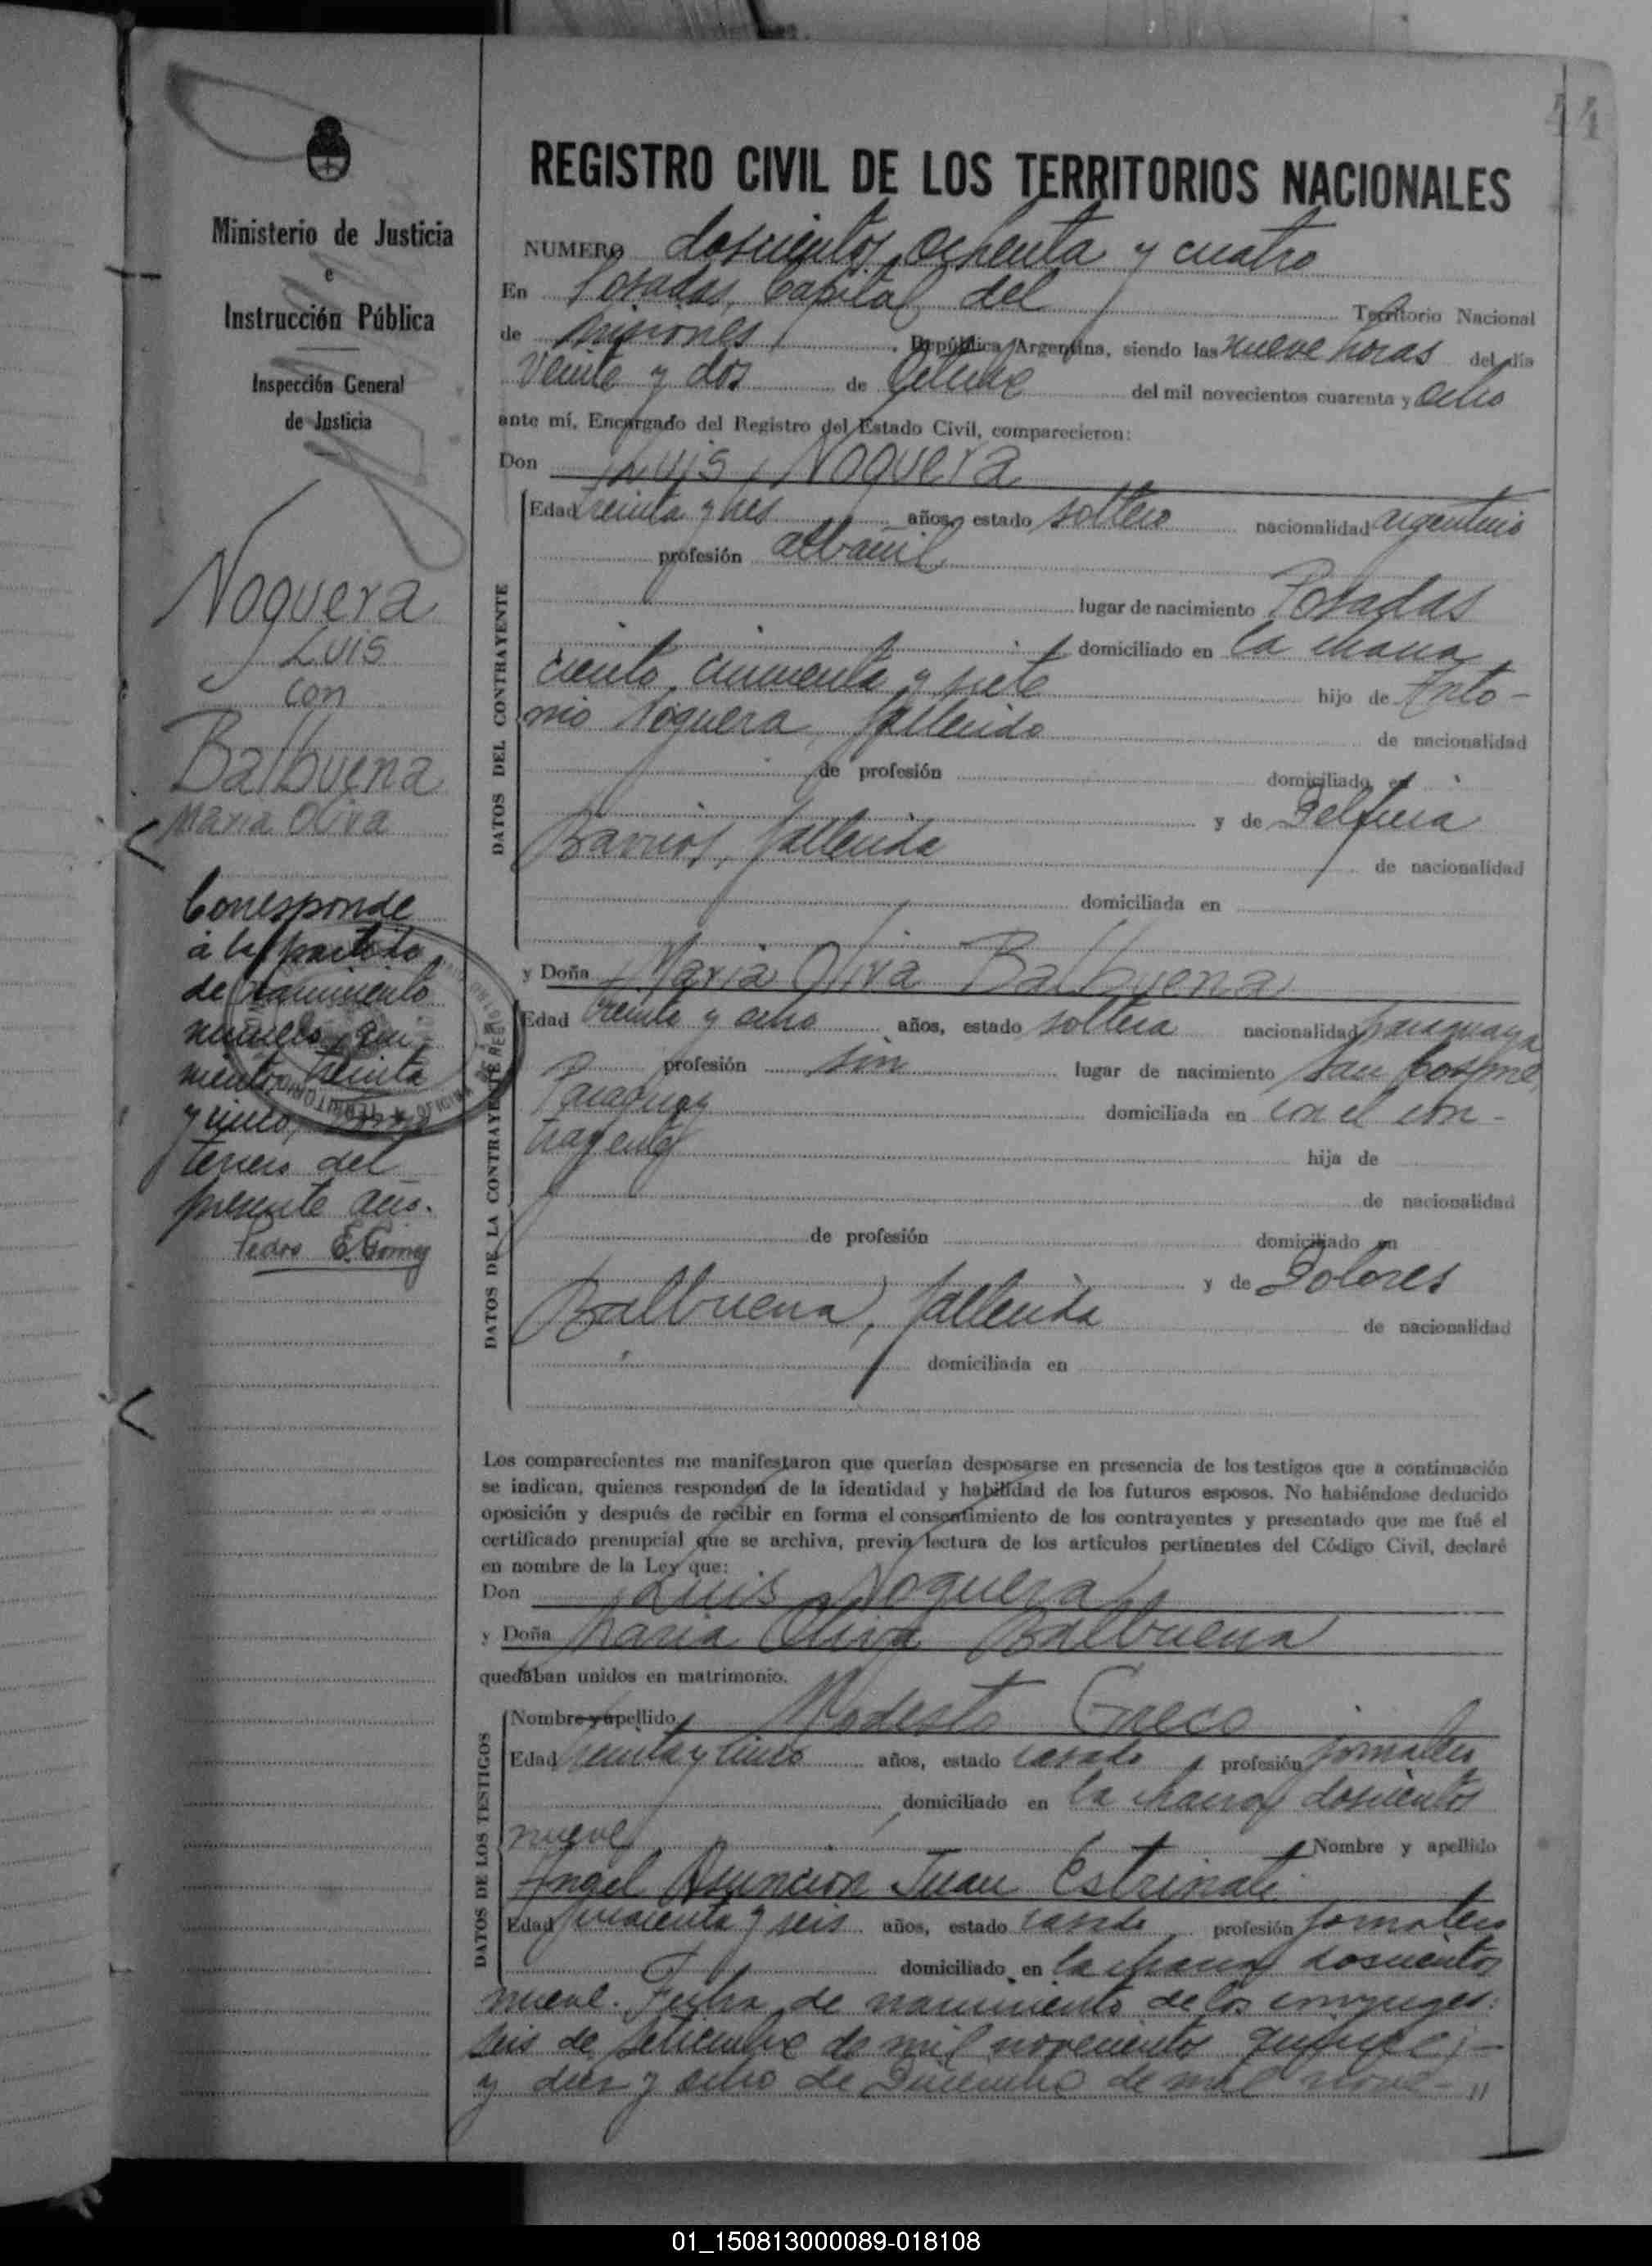 44
REGISTRO CIVIL DE LOS TERRITORIOS NACIONALES
Ministerio de Justicia
e
Instrucción Pública
Inspección General
de Justicia
Noguera
Luis
con
Balbuena
Maria Oliva
Corresponde
a la partida
de nacimiento
número qui
nientos treinta
y cinco, tomo
tercero del
presente año.
Pedro E. Gomez
NUMERO doscientos ochenta y cuatro
En Posadas, Capital del Territorio Nacional
de Misiones, República Argentina, siendo las nueve horas del día
Veinte y dos de Octubre del mil novecientos cuarenta y ocho
ante mí, Encargado del Registro del Estado Civil, comparecieron:
Don Luis Noguera
DATOS DEL CONTRAYENTE
Edad treinta y tres años, estado soltero nacionalidad argentino
profesión albañil
lugar de nacimiento Posadas
domiciliado en la chacra
ciento cincuenta y siete hijo de Anto-
nio Noguera, fallecido de nacionalidad
de profesión domiciliado en
y de Delfina
Barrios, fallecida de nacionalidad
domiciliada en
y Doña Maria Oliva Balbuena
DATOS DE LA CONTRAYENTE
Edad treinta y ocho años, estado soltera nacionalidad paraguaya
profesión sin lugar de nacimiento San Cosme,
Paraguay domiciliada en con el con-
trayente hija de
de nacionalidad
de profesión domiciliado en
y de Dolores
Balbuena, fallecida de nacionalidad
domiciliada en
Los comparecientes me manifestaron que querían desposarse en presencia de los testigos que a continuación
se indican, quienes responden de la identidad y habilidad de los futuros esposos. No habiéndose deducido
oposición y después de recibir en forma el consentimiento de los contrayentes y presentado que me fué el
certificado prenupcial que se archiva, previa lectura de los artículos pertinentes del Código Civil, declaré
en nombre de la Ley que:
Don Luis Noguera
y Doña Maria Oliva Balbuena
quedaban unidos en matrimonio.
DATOS DE LOS TESTIGOS
Nombre y apellido Modesto Greco
Edad treinta y cinco años, estado casado profesión jornalero
domiciliado en la chacra doscientos
nueve Nombre y apellido
Angel Asuncion Juan Estrinati
Edad cuarenta y seis años, estado casado profesión jornalero
domiciliado en la chacra doscientos
nueve. Fecha de nacimiento de los conyuges:
seis de Setiembre de mil novecientos quince;-
y diez y ocho de Diciembre de mil nove-"
01_150813000089-018108